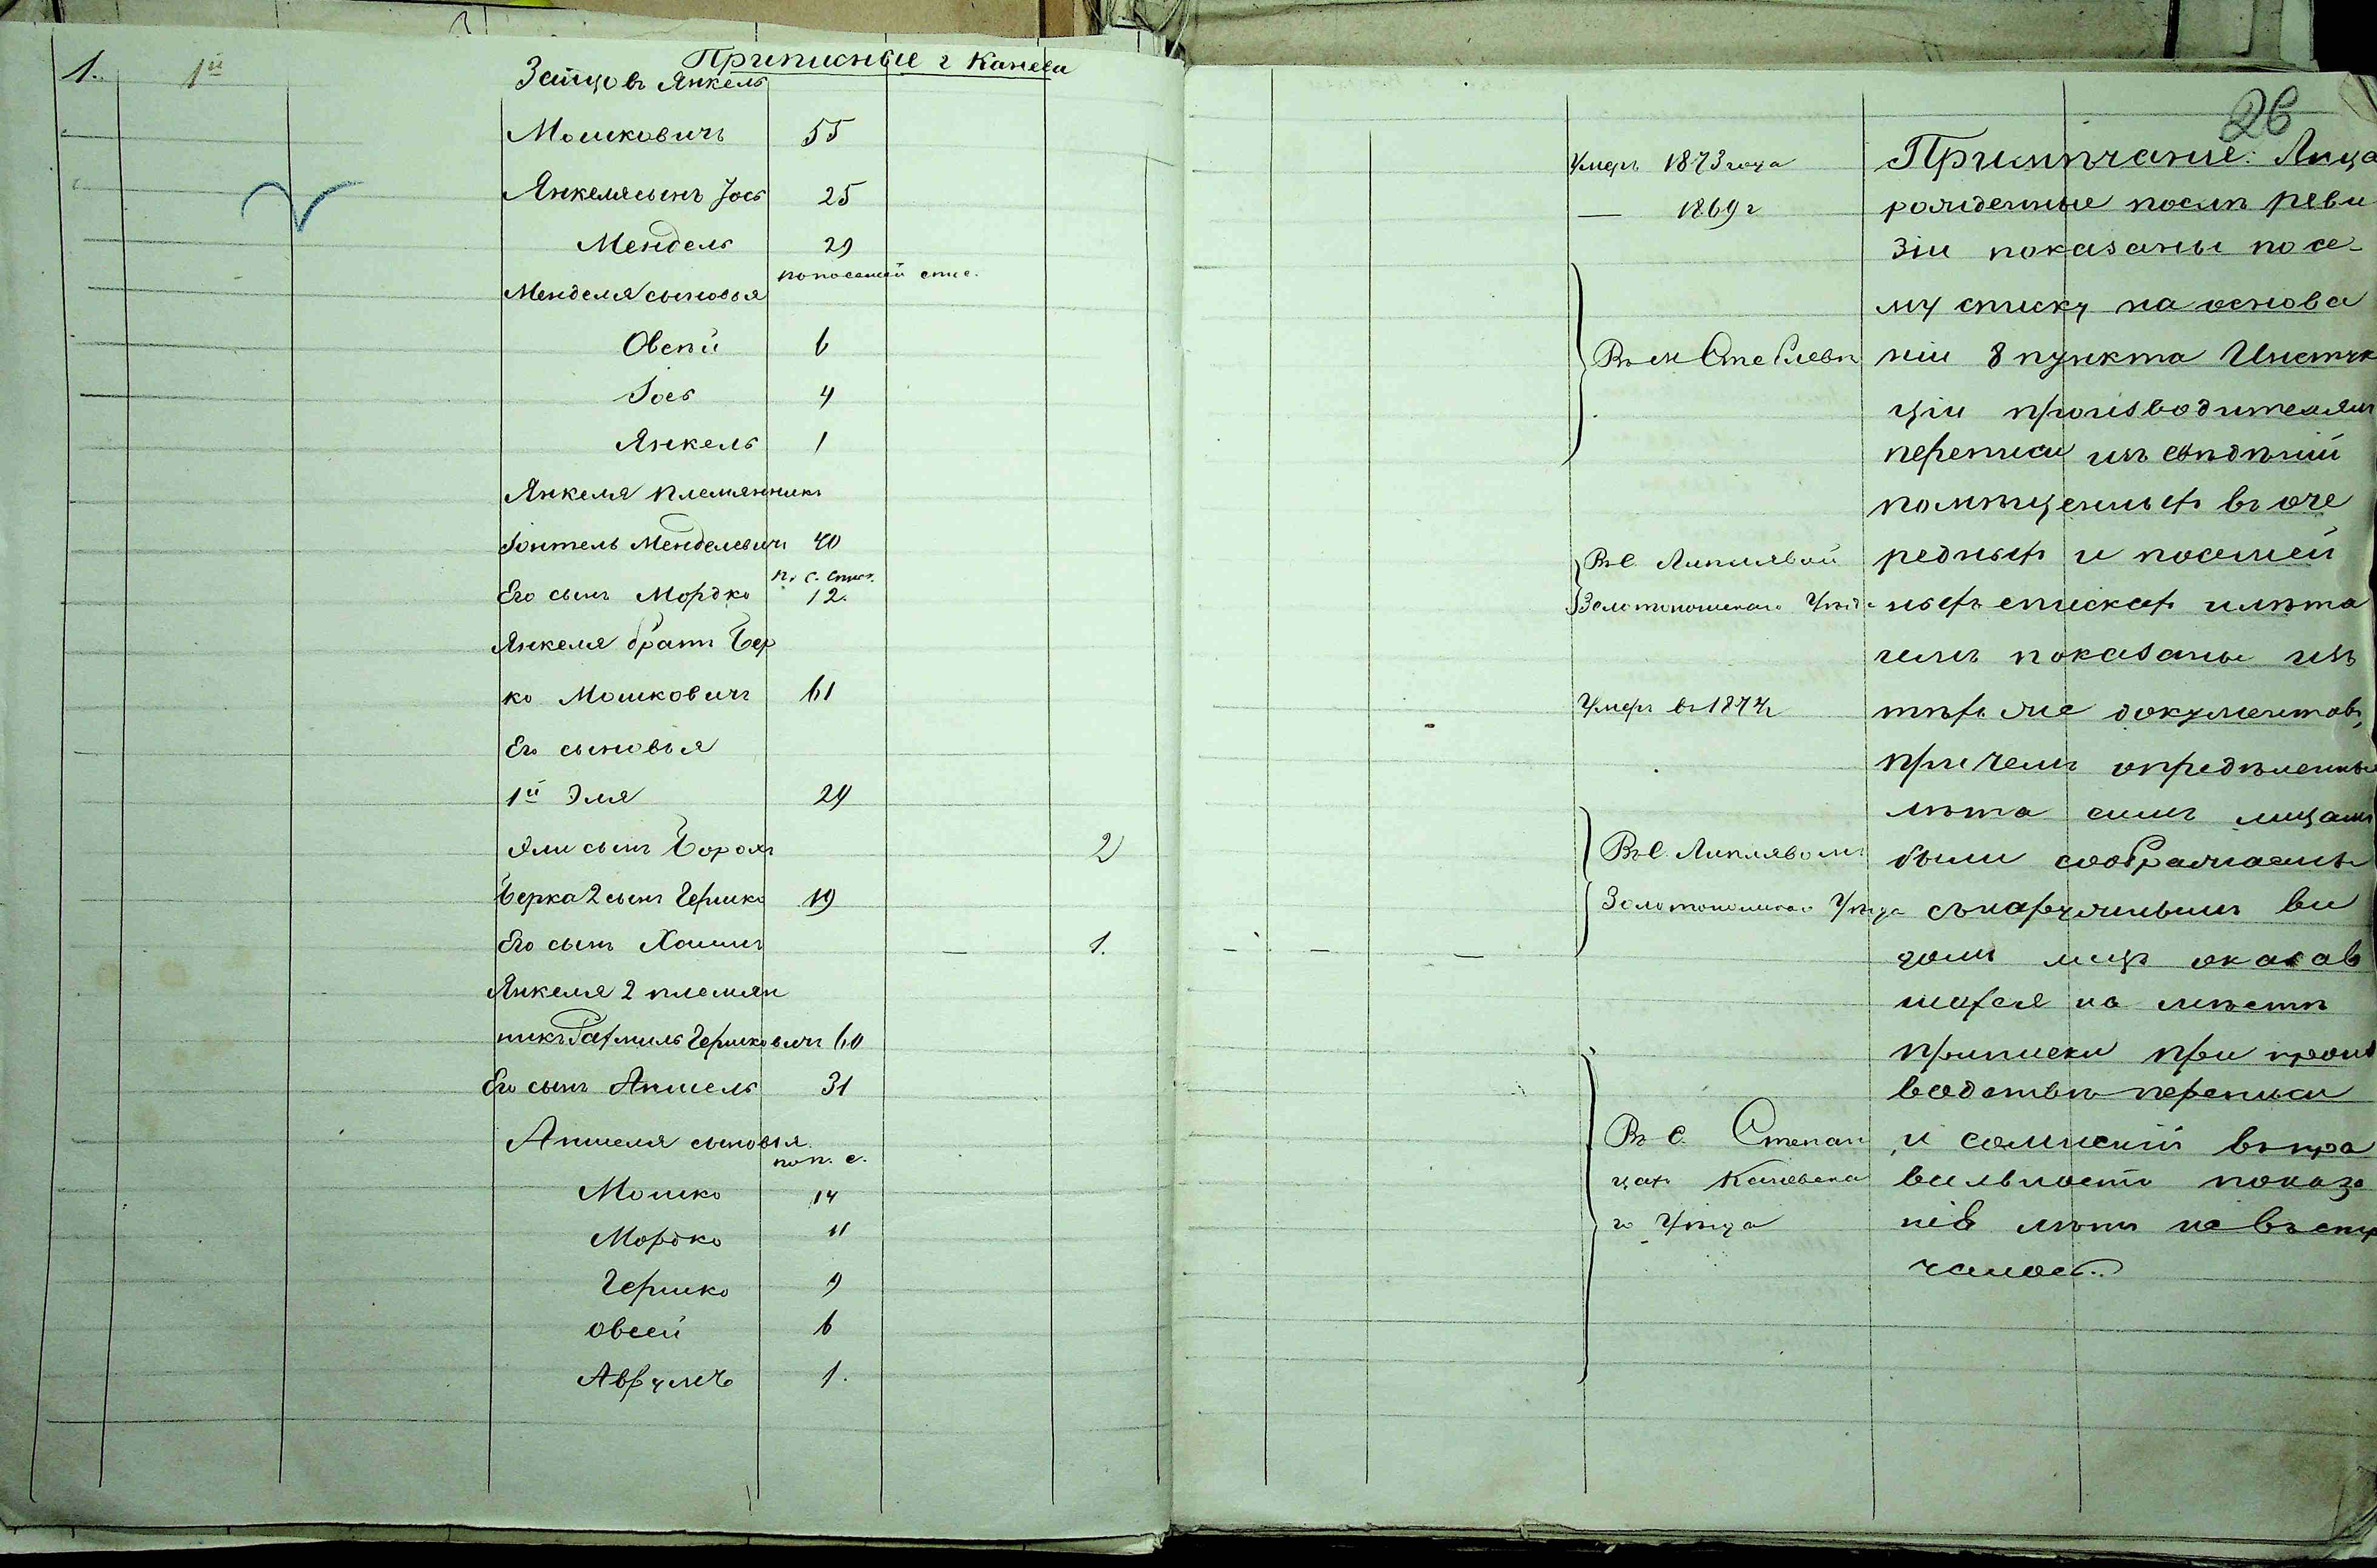 Приписные г Канева
1.
1й
Зайцовъ Янкель
Мошковичъ 55
Янкеля сынъ Іось 25
Мендель 29
по посемей спис.
Менделя сыновья
Овсѣй 6
Іось 4
Янкель 1
Янкеля племянникъ
Іонтель Менделевичъ 40
п. с. спис.
Его сынъ Мордко 12.
Янкеля братъ Бер
ко Мошковичъ 61
Его сыновья
1й Эля 24
Эли сынъ Борохъ 2
Берка 2 сынъ Гершко 19
Его сынъ Хаимъ — 1.
Янкеля 2 племян
никъ Рахмиль Гершковичъ 60
Его сынъ Аншель 31
Аншеля сыновья
по п. с.
Мошко 14
Мордко 11
Гершко 9
Овсей 6
Аврумъ 1.
26
Умеръ 1873 года
— 1869 г
Въ м Стеблевѣ
Въ с. Липлявой
Золотоношскаго Уѣзда
Умеръ въ 1874 г
Въ с. Липлявомъ
Золотоношскаго Уѣзда
Въ с. Степан
цах Каневска
го Уѣзда
Примѣчаніе: Лица
рожденные послѣ реви
зіи показаны по се-
му списку на основа
ніи 8 пункта Инструк
ціи производителямъ
переписи изъ свѣдѣній
помѣщенныхъ въ оче
редныхъ и посемей
ныхъ спискахъ и лѣта
имъ показаны изъ
тѣхъ же документовъ,
при чемъ опредѣленные
лѣта симъ лицамъ
были соображаемы
съ наружнымъ ви
домъ лицъ оказав
шихся на мѣстѣ
приписки при произ
водствѣ переписи
и сомнѣній въ пра
вильности показа
нія лѣтъ не встрѣ
чалось.